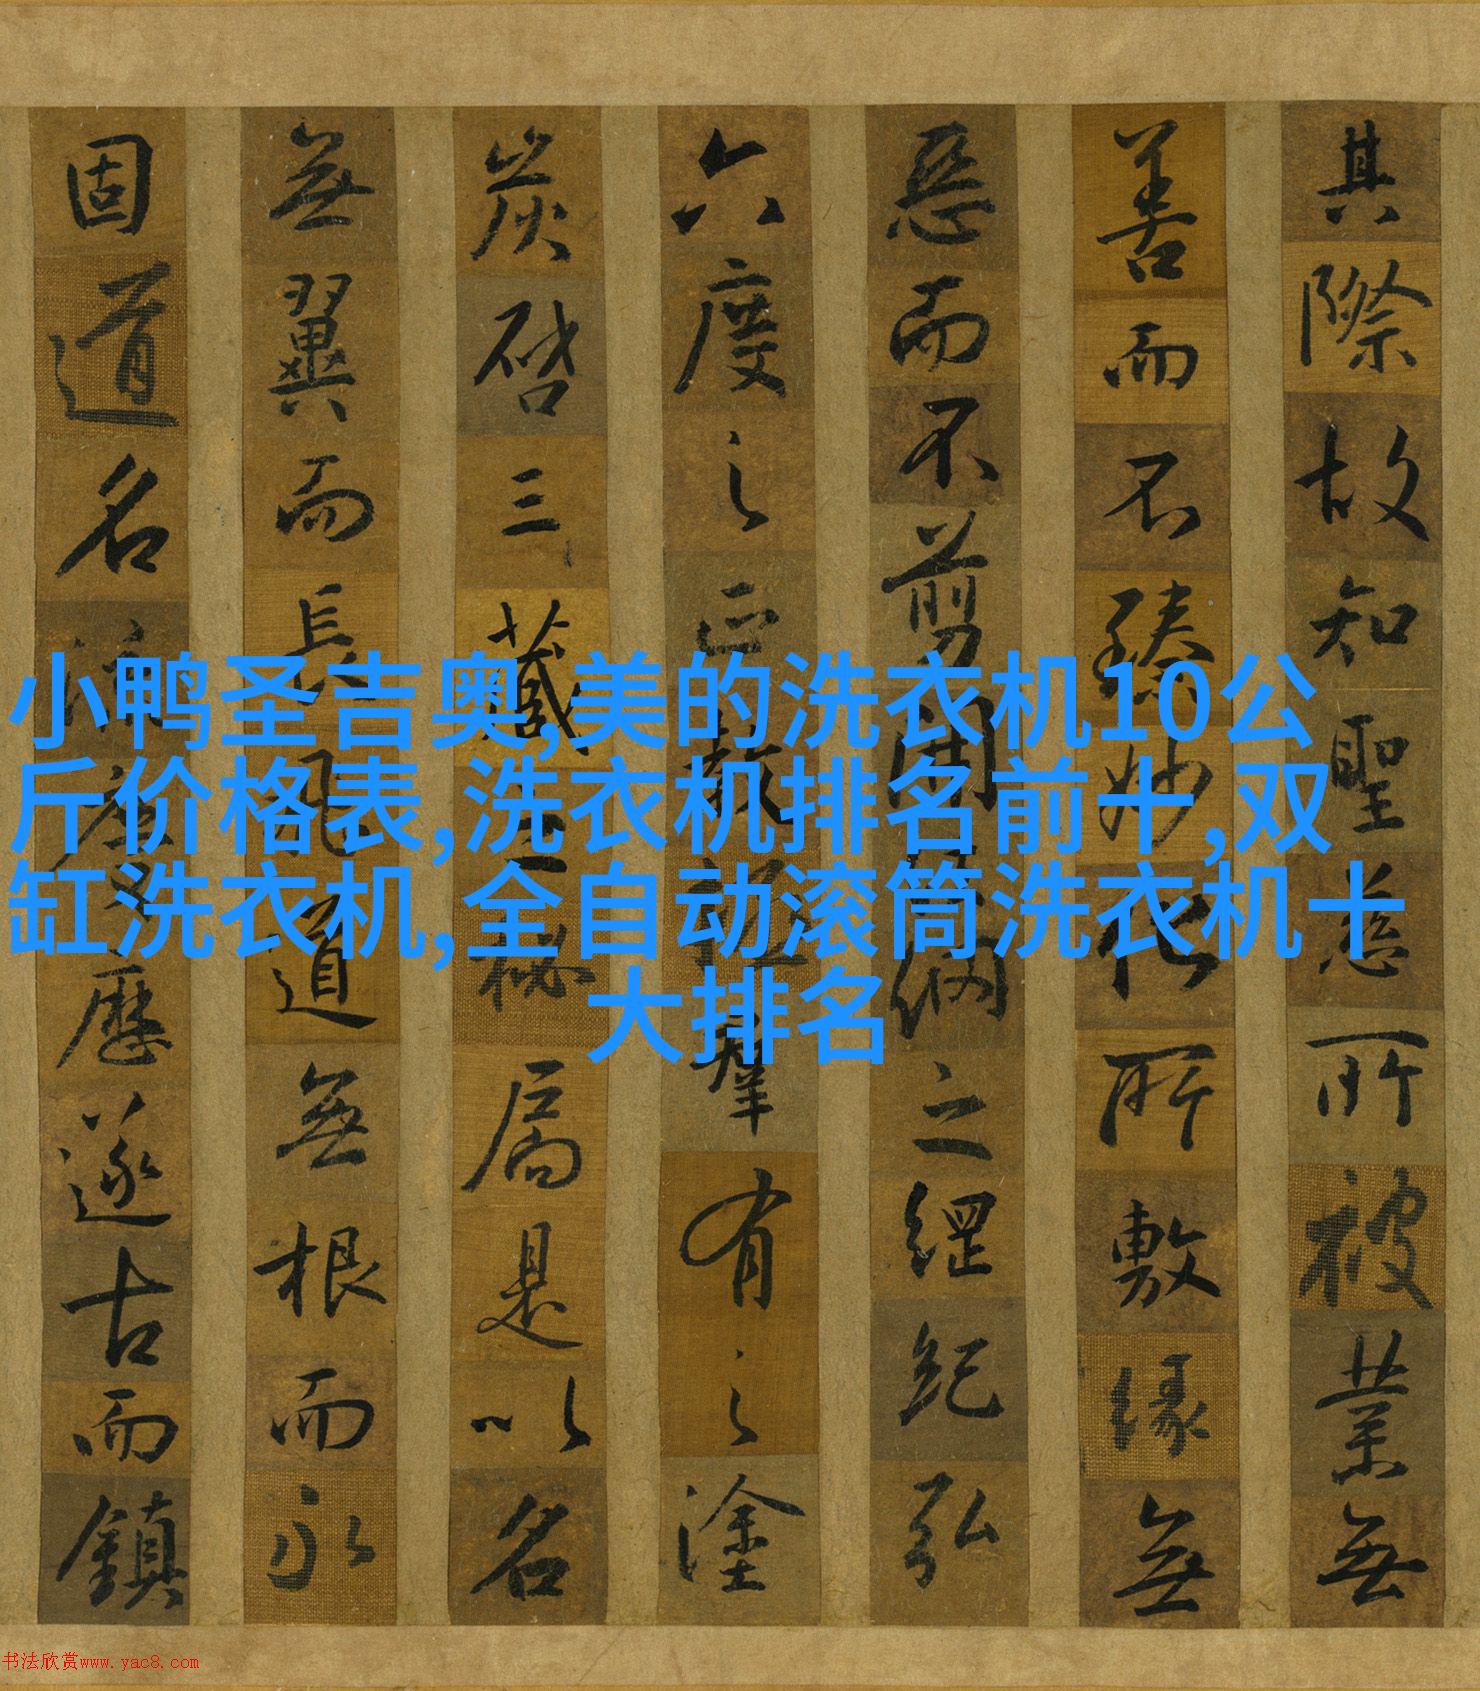 小鸭圣吉奥,美的洗衣机10公
斤价格表,洗衣机排名前十,双
缸洗衣机,全自动滚筒洗衣机十
大排名
其際故知聖慈所被業無
善而不臻妙化所敷緣無
惡而不剪開網之綱紀弘
六度之正教拯羣有之塗
炭啓三藏之秘扃是以名
無翼而長飛道無根而永
固道名流慶歷遂古而鎮
书法欣赏www.yac8.com